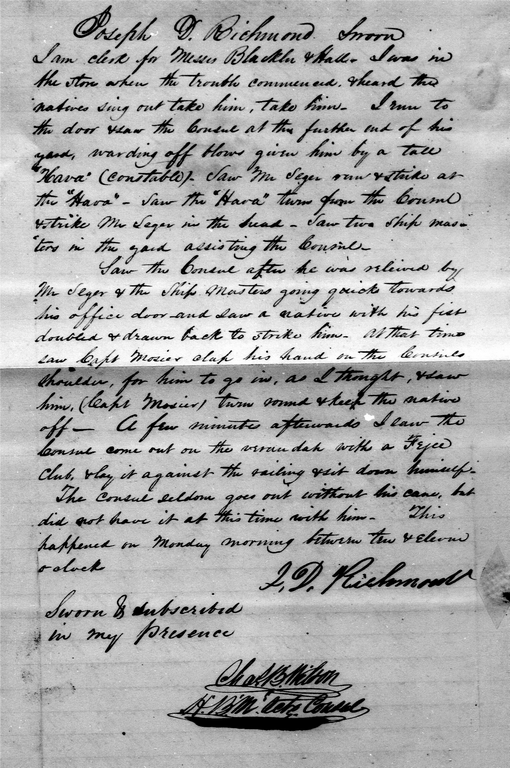 Joseph D. Richmond Sworn
I am clerk for Messrs Blackler & Hall. I was in
the store when the trouble commenced, & heard the
natives sing out take him, take him - I run to
the door & saw the Consul at the further end of his
yard, warding off blows given him by a tall
"Hava" (constable) - Saw Mr Seger run & strike at
the "Hava" - Saw the "Hava" turn from the Consul
& strike Mr Seger in the head - Saw two Ship mas-
ters in the yard assisting the Consul -
Saw the Consul after he was relieved by
Mr Seger & the Ship Masters going quick towards
his office door - and saw a native with his fist
doubled & drawn back to strike him - At that time
saw Capt Mosier clap his hand on the Consuls
shoulder, for him to go in, as I thought, & saw
him, (Capt Mosier) turn round & keep the native
off - A few minutes afterwards I saw the
Consul come out on the verandah with a Fejee
club, & lay it against the railing & sit down himself -
The Consul seldom goes out without his cane, but
did not have it at this time with him - This
happened on Monday morning between ten & eleven
o clock
J. D. Richmond
Sworn & subscribed
in my presence
Chas B Wilson
H. B. M. Actg Consul